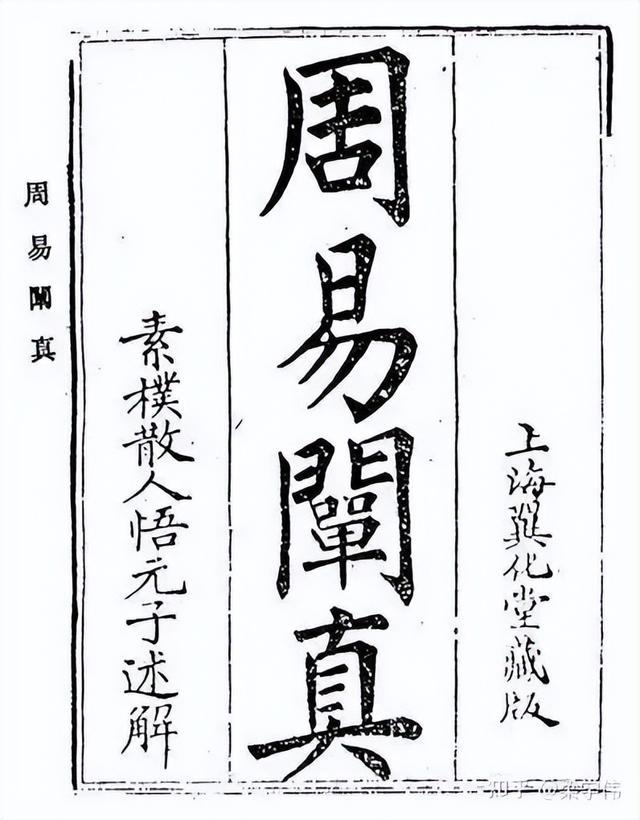 上海翼化堂藏版
周易闡真
素樸散人悟元子述解
周易闡真
知乎